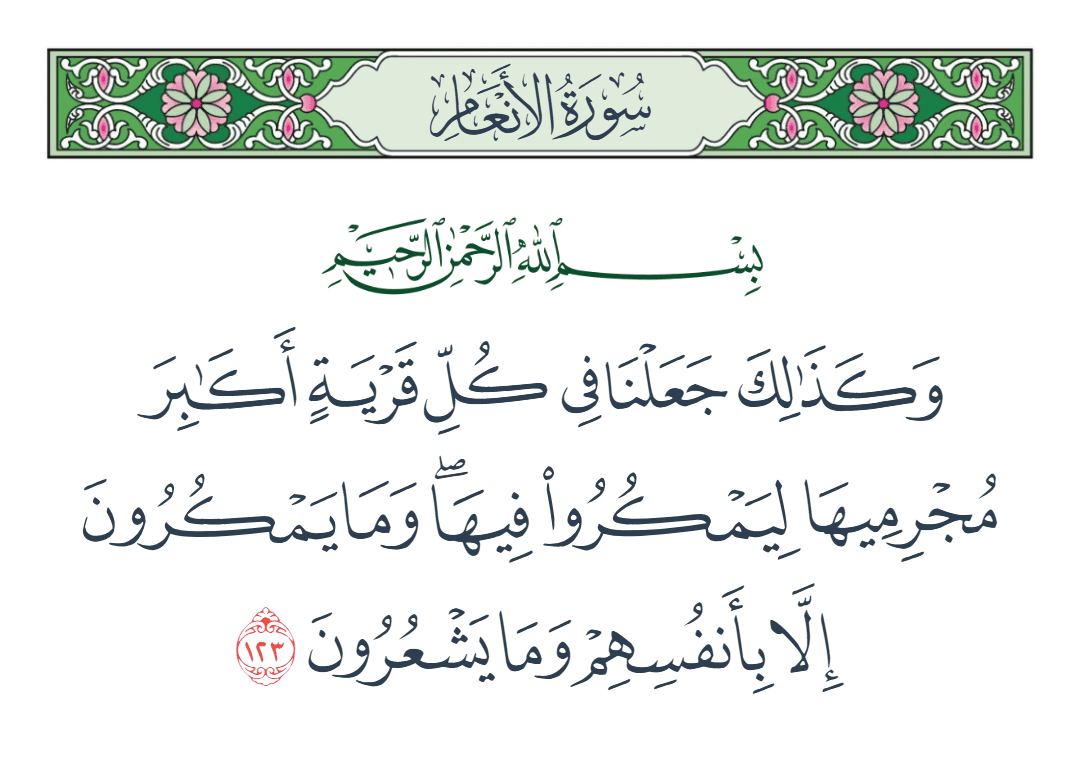 سُورَةُ الأَنْعَامِ
بِسْمِ ٱللَّهِ ٱلرَّحْمَٰنِ ٱلرَّحِيمِ
وَكَذَٰلِكَ جَعَلْنَا فِى كُلِّ قَرْيَةٍ أَكَـٰبِرَ
مُجْرِمِيهَا لِيَمْكُرُوا۟ فِيهَا ۖ وَمَا يَمْكُرُونَ
إِلَّا بِأَنفُسِهِمْ وَمَا يَشْعُرُونَ ١٢٣